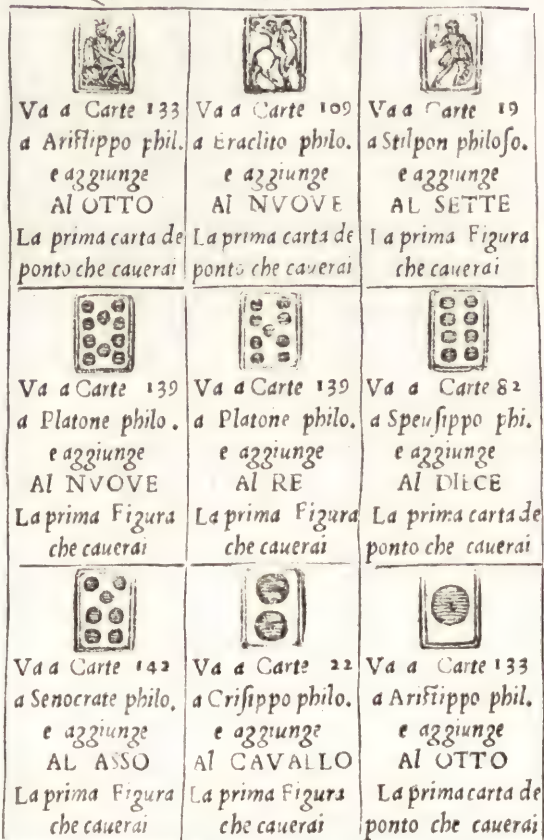 Va a Carte 133
a Ariſtippo phil.
e aggiunge
Al OTTO
La prima carta de
ponto che cauerai
Va a Carte 109
a Eraclito philo.
e aggiunge
Al NVOVE
La prima carta de
ponto che cauerai
Va a Carte 19
a Stilpon philoſo.
e aggiunge
AL SETTE
La prima Figura
che cauerai
Va a Carte 139
a Platone philo.
e aggiunge
Al NVOVE
La prima Figura
che cauerai
Va a Carte 139
a Platone philo.
e aggiunge
Al RE
La prima Figura
che cauerai
Va a Carte 82
a Speuſippo phi.
e aggiunge
Al DIECE
La prima carta de
ponto che cauerai
Va a Carte 142
a Senocrate philo.
e aggiunge
AL ASSO
La prima Figura
che cauerai
Va a Carte 22
a Criſippo philo.
e aggiunge
Al CAVALLO
La prima Figura
che cauerai
Va a Carte 133
a Ariſtippo phil.
e aggiunge
Al OTTO
La prima carta de
ponto che cauerai